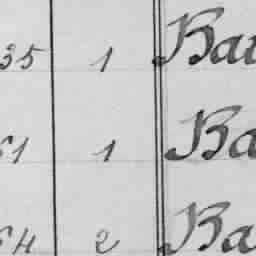 35 1 Bai
61 1 Ba
64 2 Ba